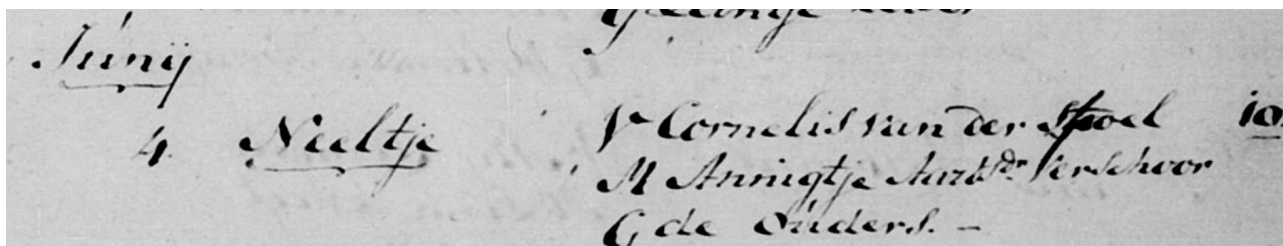 Junij
4. Neeltje V Cornelis van der Spoel
M Annigtje Aartsdr Verschoor
G de Ouders. -